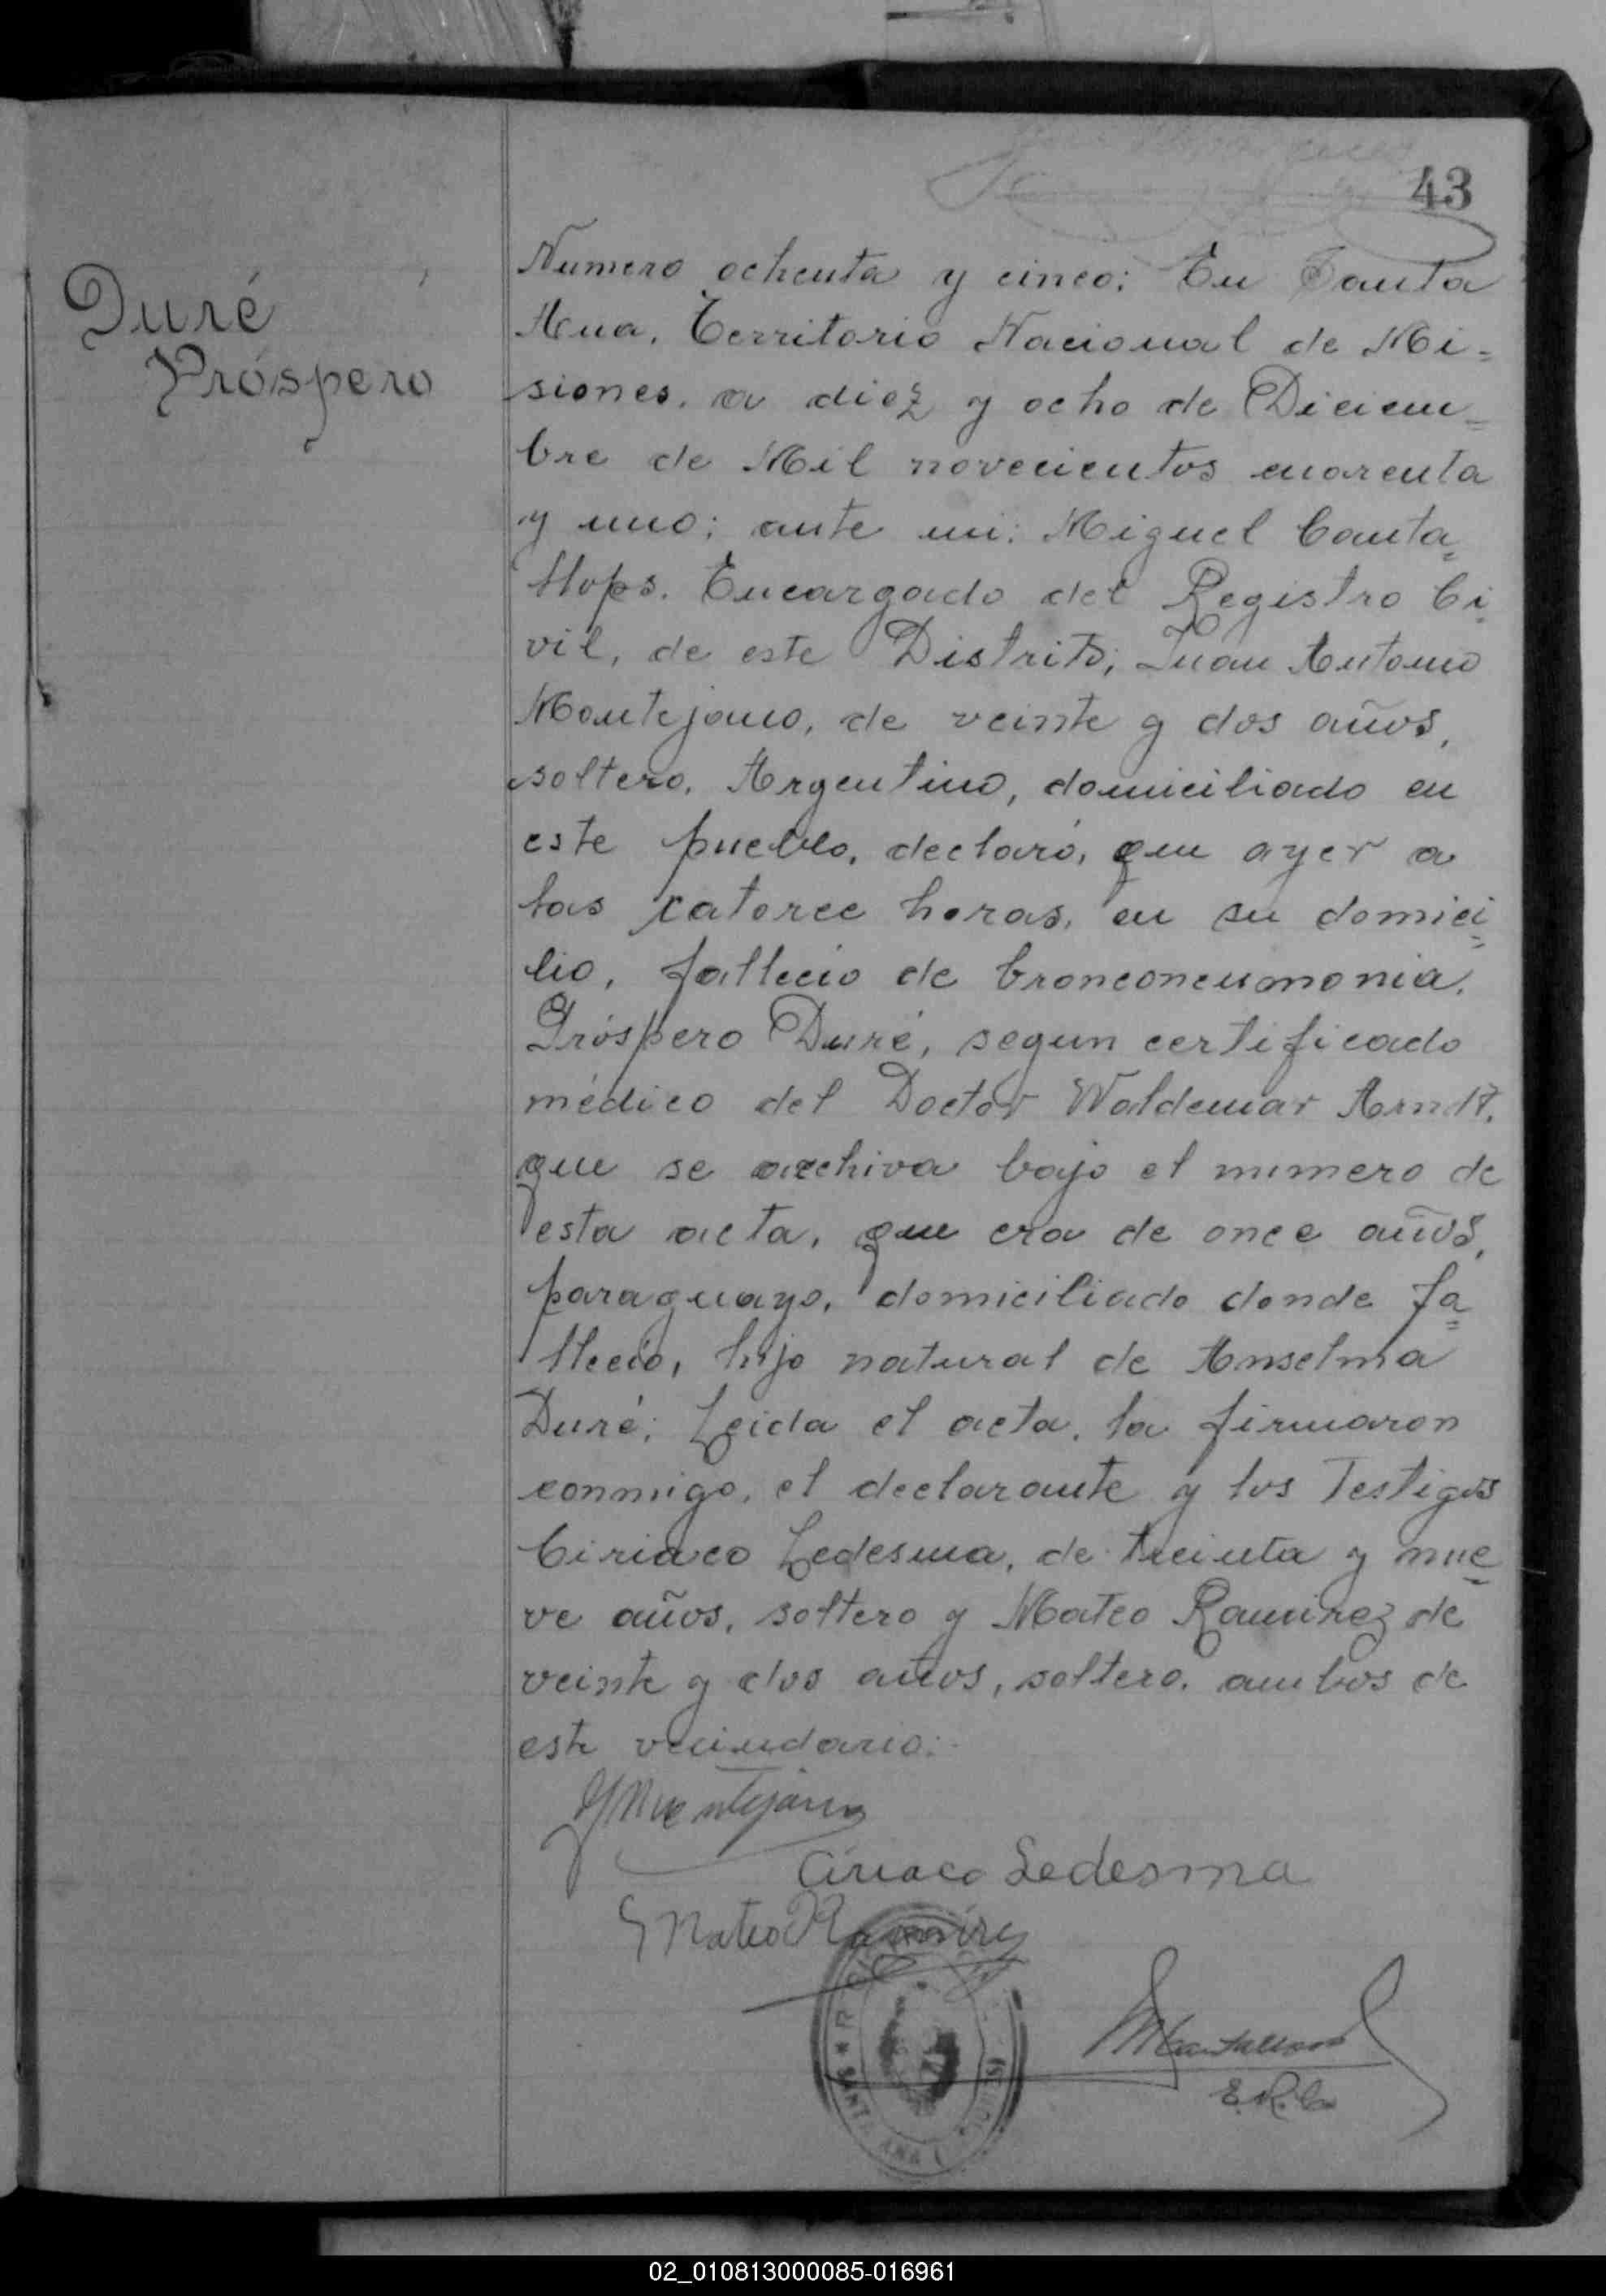 43
Duré
Próspero
Numero ochenta y cinco: En Santa
Ana, Territorio Nacional de Mi=
siones, a diez y ocho de Diciem=
bre de Mil novecientos cuarenta
y uno; ante mi: Miguel Canta=
llops. Encargado del Registro Ci=
vil, de este Distrito; Juan Antonio
Montejano, de veinte y dos años,
soltero, Argentino, domiciliado en
este pueblo, declaró, que ayer a
las catorce horas, en su domici=
lio, fallecio de bronconeumonia.
Próspero Duré, segun certificado
médico del Doctor Waldemar Arndt,
que se archiva bajo el numero de
esta acta, que era de once años,
paraguayo, domiciliado donde fa=
llecio, hijo natural de Anselma
Duré; Leida el acta, la firmaron
conmigo, el declarante y los Testigos
Ciriaco Ledesma, de treinta y nue=
ve años, soltero y Mateo Ramirez de
veinte y dos años, soltero, ambos de
este vecindario:-
Ciriaco Ledesma
Mateo Ramírez
E.R.C.
SANTA ANA
02_010813000085-016961